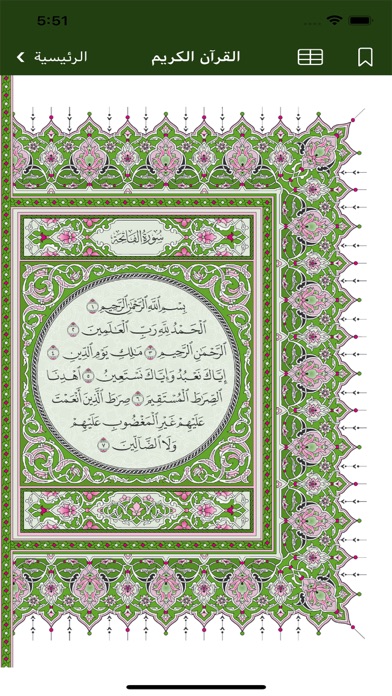 5:51
القرآن الكريم
الرئيسية
سُورَةُ الفَاتِحَةِ
بِسْمِ ٱللَّهِ ٱلرَّحْمَٰنِ ٱلرَّحِيمِ ١
ٱلْحَمْدُ لِلَّهِ رَبِّ ٱلْعَٰلَمِينَ ٢
ٱلرَّحْمَٰنِ ٱلرَّحِيمِ ٣ مَٰلِكِ يَوْمِ ٱلدِّينِ ٤
إِيَّاكَ نَعْبُدُ وَإِيَّاكَ نَسْتَعِينُ ٥ ٱهْدِنَا
ٱلصِّرَٰطَ ٱلْمُسْتَقِيمَ ٦ صِرَٰطَ ٱلَّذِينَ أَنْعَمْتَ
عَلَيْهِمْ غَيْرِ ٱلْمَغْضُوبِ عَلَيْهِمْ
وَلَا ٱلضَّآلِّينَ ٧